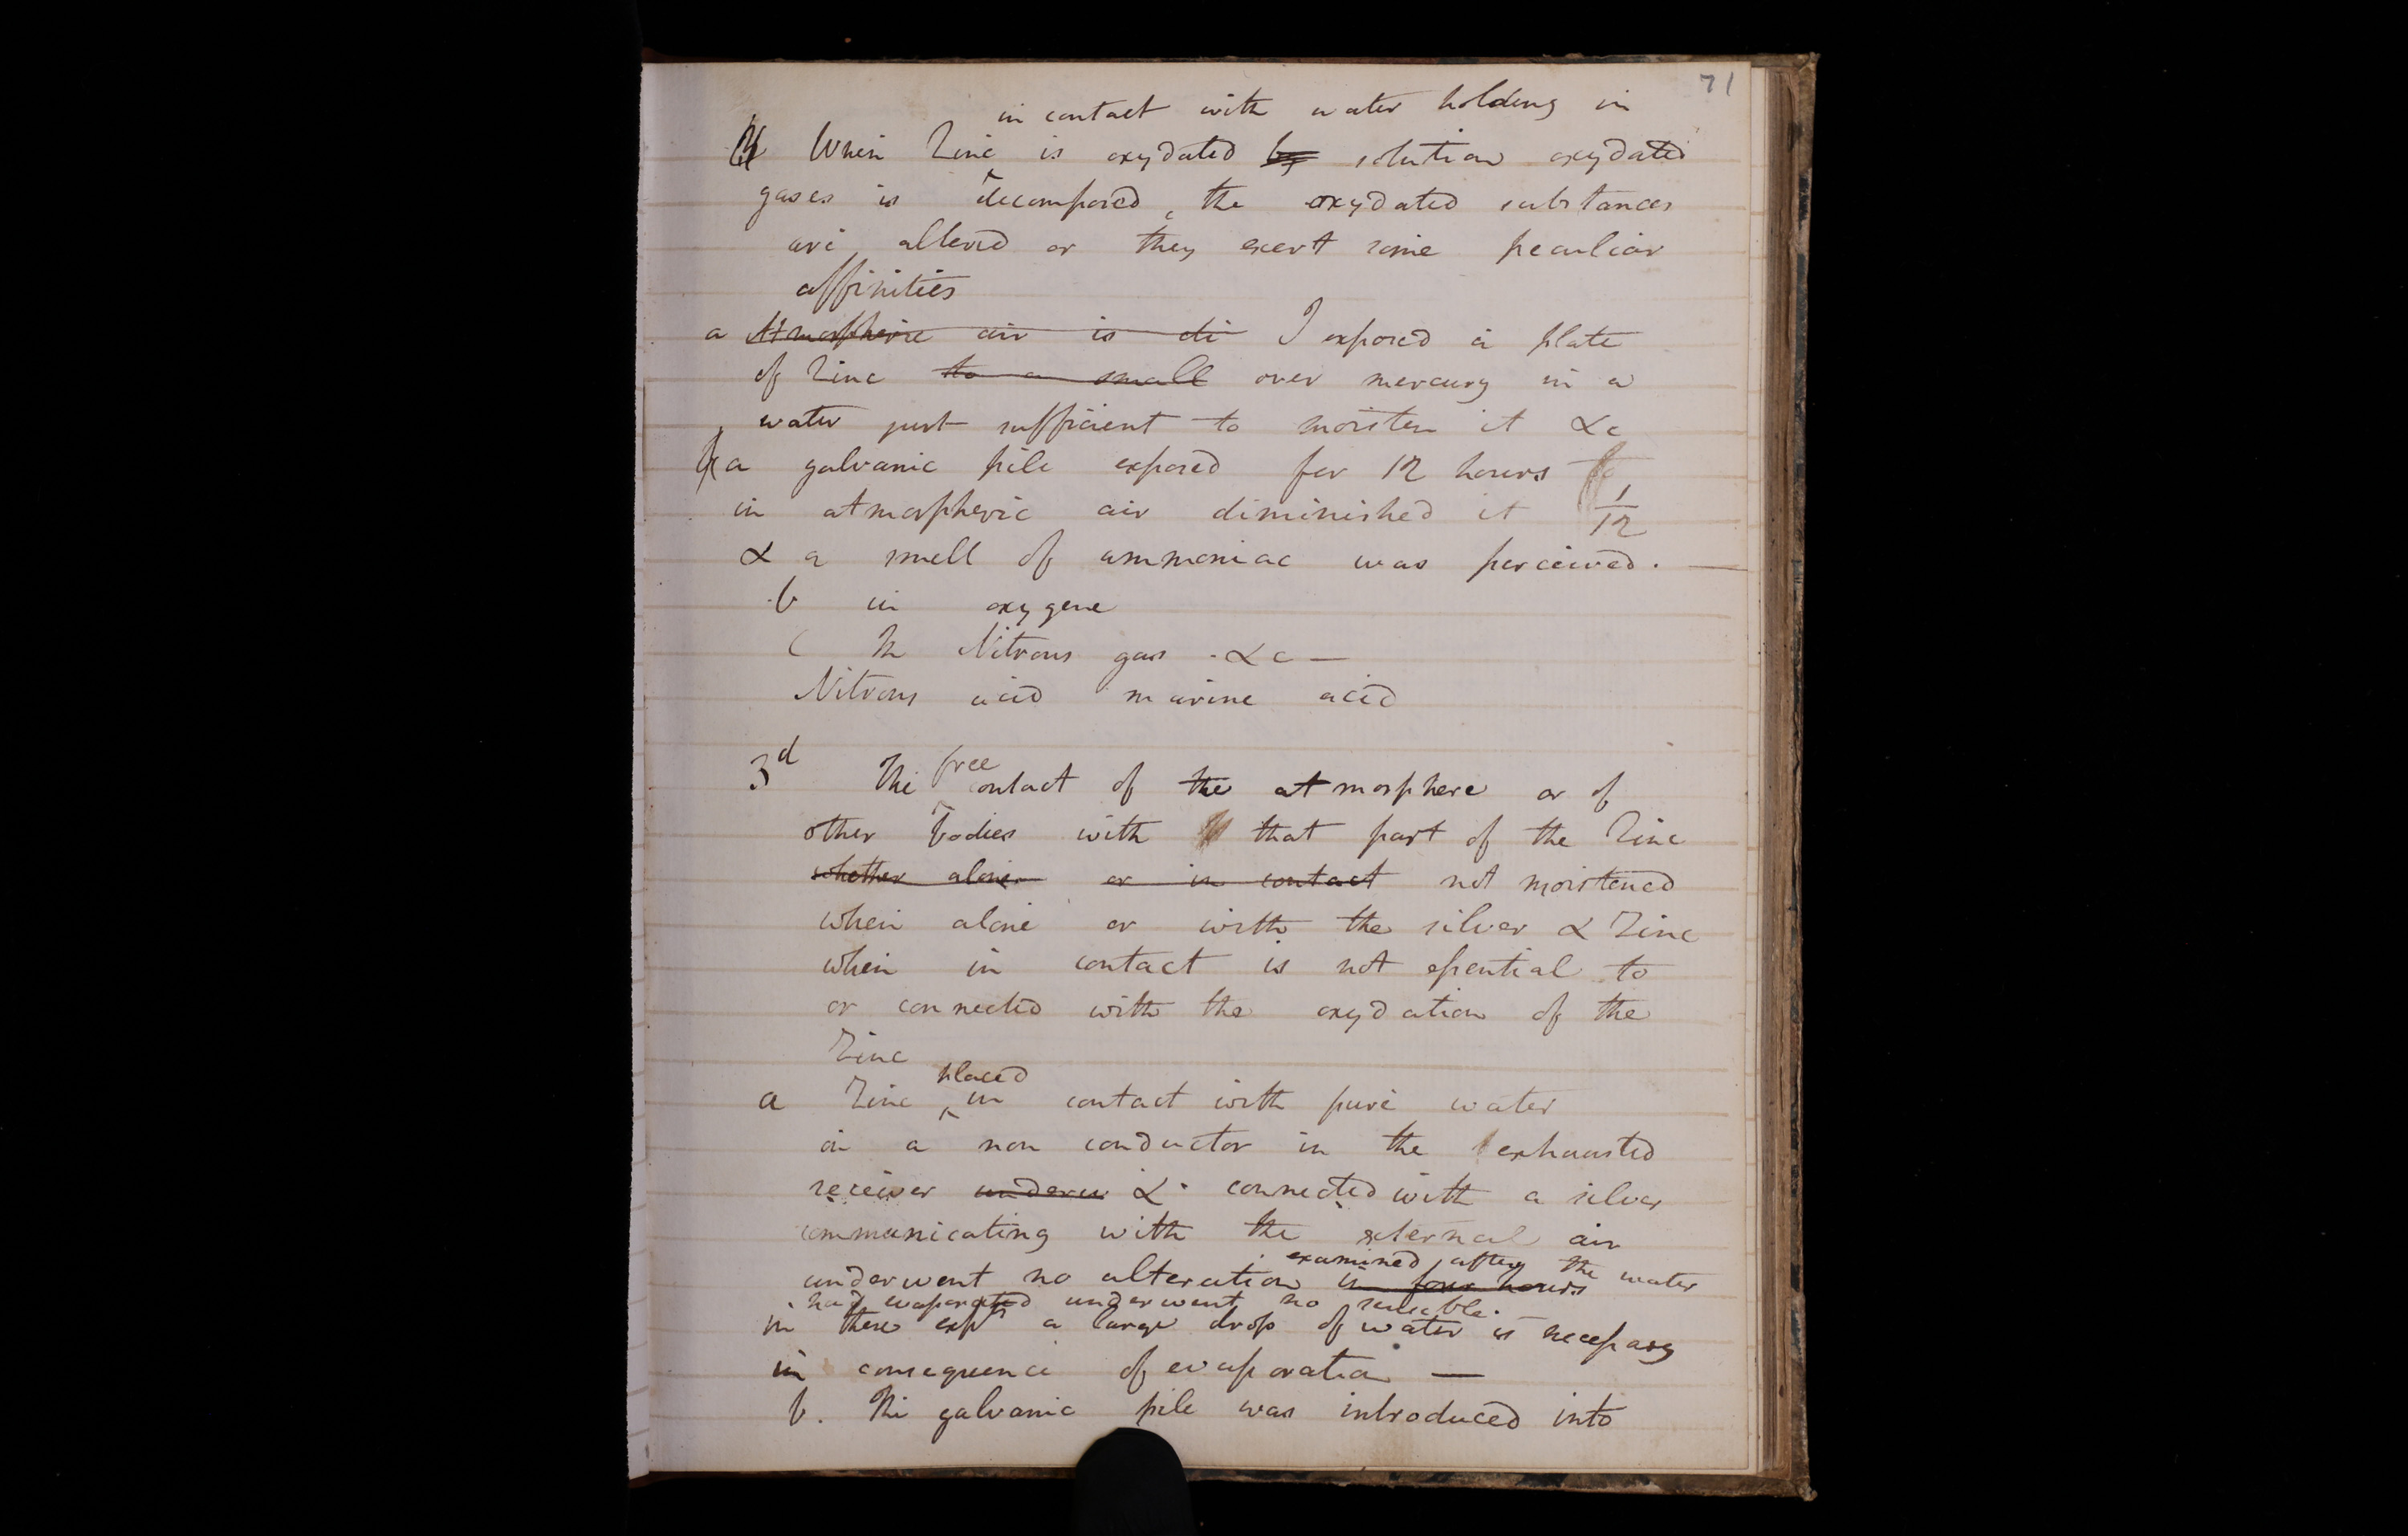 71
in contact with water holding in
When Zinc is oxydated by solution oxydated
gases is decomposed, the oxydated substances
are altered or they exert some peculiar
affinities
a Atmospheric air is di I exposed a plate
of Zinc to a small over mercury in a
water just sufficient to moisten it &c
a galvanic pile exposed for 12 hours to
in atmospheric air diminished it 1/12
& a smell of ammoniac was perceived. —
b in oxygene
c In Nitrous gas - &c —
Nitrous acid marine acid
3d The free contact of the atmosphere or of
other bodies with that part of the Zinc
whether alone or in contact not moistened
when alone or with the silver & Zinc
when in contact is not essential to
or connected with the oxydation of the
Zinc
placed
a Zinc ^ in contact with pure water
on a non conductor in the exhausted
receiver & connected with a silver
communicating with the external air
examined after the water
underwent no alteration in four hours
had evaporated underwent no sensible.
in these expts a large drop of water is necessary
in consequence of evaporation —
b. The galvanic pile was introduced into